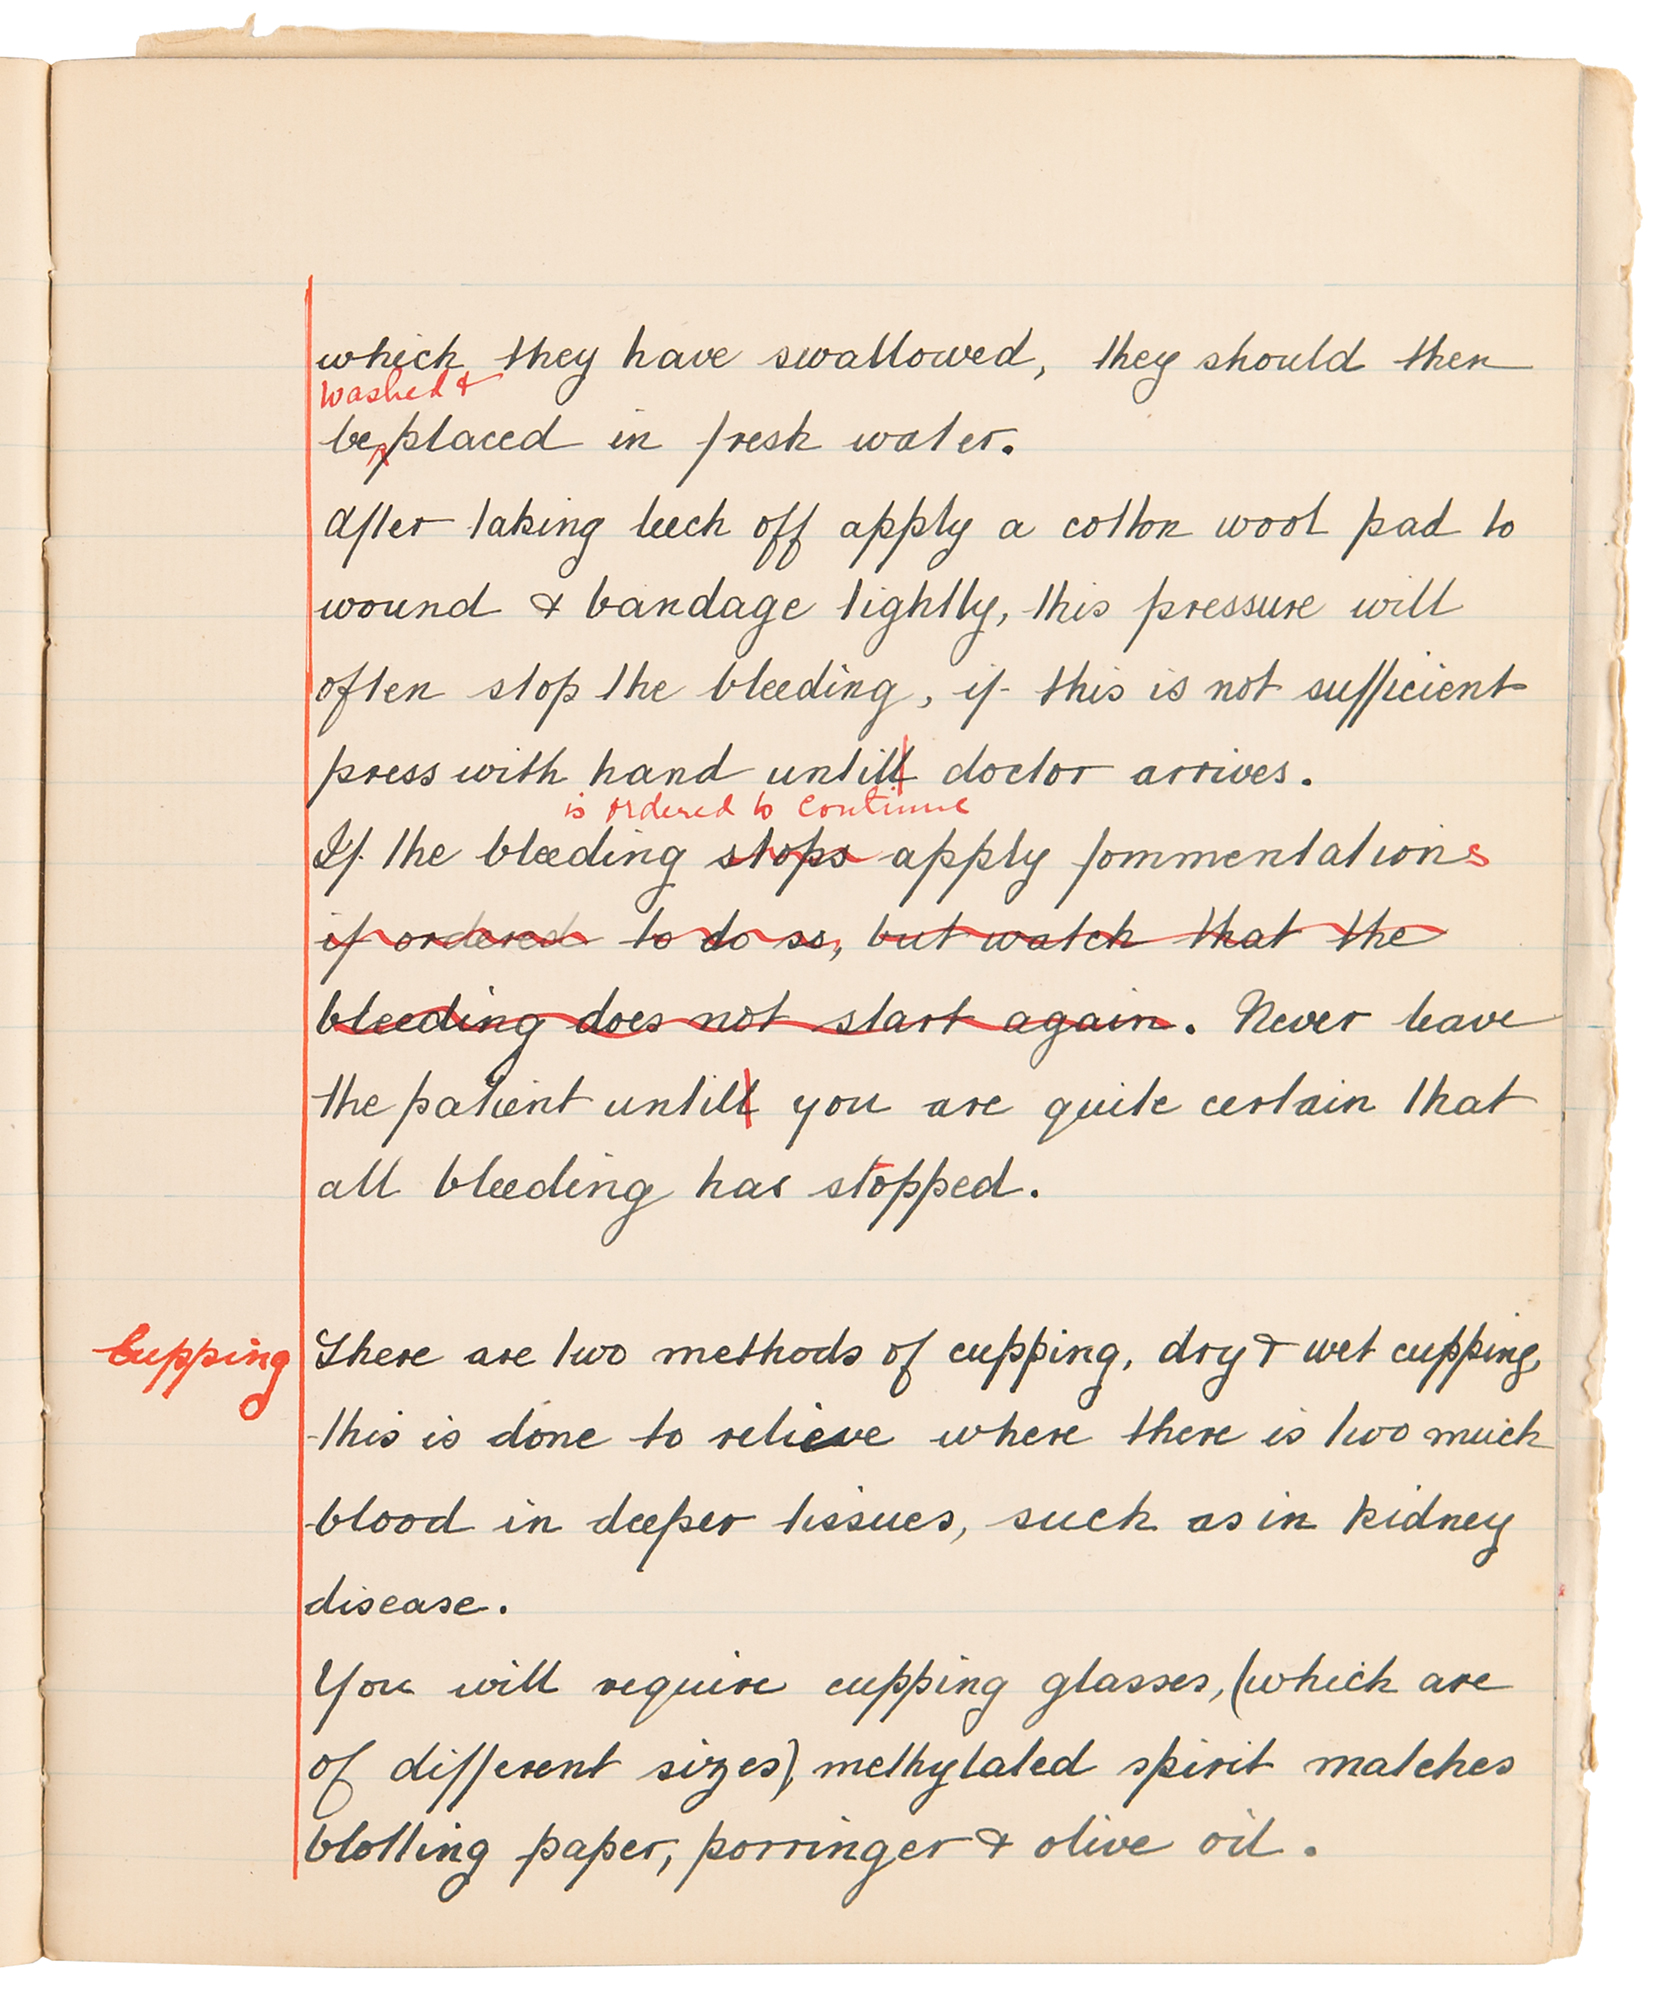 which they have swallowed, they should then
washed &
be placed in fresh water.
After taking leech off apply a cotton wool pad to
wound & bandage tightly, this pressure will
often stop the bleeding, if this is not sufficient
press with hand untill doctor arrives.
is ordered to continue
If the bleeding stops apply fommentations
if ordered to do so, but watch that the
bleeding does not start again. Never leave
the patient untill you are quite certain that
all bleeding has stopped.
Cupping There are two methods of cupping, dry & wet cupping,
this is done to relieve where there is two much
blood in deeper tissues, such as in kidney
disease.
You will require cupping glasses, (which are
of different sizes) methylated spirit matches
blotting paper, porringer & olive oil.